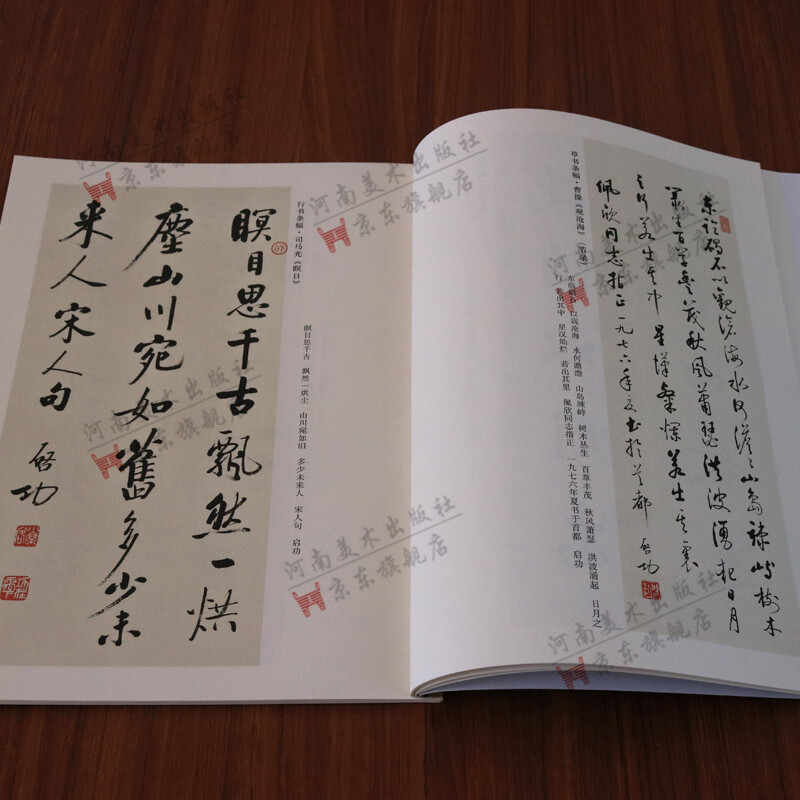 瞑目思千古飘然一烘
塵山川宛如舊多少未
来人宋人句
启功
行书条幅·司马光《瞑目》
瞑目思千古 飘然一烘尘 山川宛如旧 多少未来人 宋人句 启功
东临碣石以觀滄海水何澹〻山島竦峙樹木
叢生百草豐茂秋風蕭瑟洪波湧起日月
之行若出其中星漢粲爛若出其裏
佩欣同志指正一九七六年夏书於首都
启功
草书条幅·曹操《观沧海》(节录)
东临碣石 以观沧海 水何澹澹 山岛竦峙 树木丛生 百草丰茂 秋风萧瑟 洪波涌起 日月之
行 若出其中 星汉灿烂 若出其里 佩欣同志指正 一九七六年夏书于首都 启功
河南美术出版社
京东旗舰店
河南美术出版社
京东旗舰店
河南美术出版社
京东旗舰店
河南美术出版社
京东旗舰店
河南美术出版社
京东旗舰店
河南美术出版社
京东旗舰店
河南美术出版社
京东旗舰店